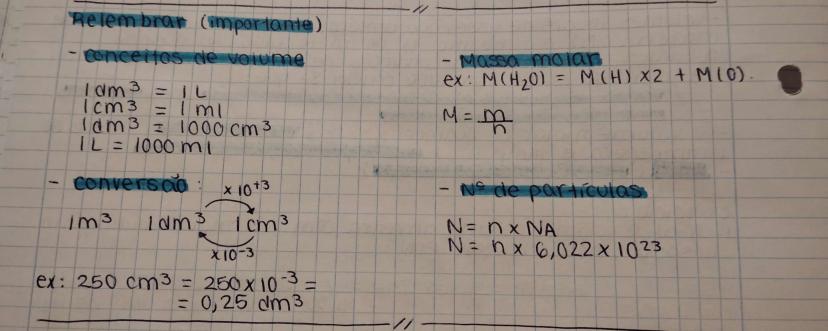 Relembrar (importante)
- conceitos de volume
1 dm³ = 1 L
1 cm³ = 1 ml
1 dm³ = 1000 cm³
1 L = 1000 ml
- conversão:
×10⁺³
1m³ 1 dm³ 1 cm³
×10⁻³
ex: 250 cm³ = 250×10⁻³ =
= 0,25 dm³
- Massa molar
ex: M(H₂O) = M(H) ×2 + M(O).
M = m/n
- Nº de partículas
N = n × NA
N = n × 6,022×10²³